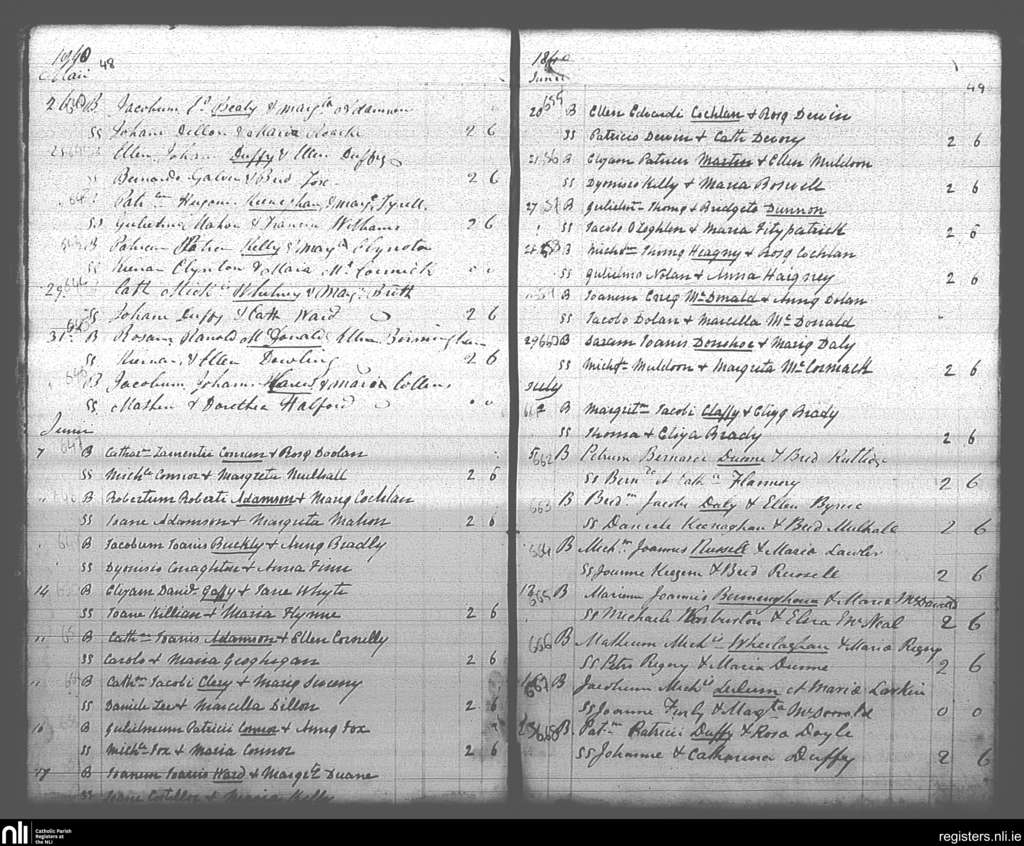 1840
Maii 48
B Jacobum Beaty & Marg ta Adamson
SS Johann Dillon & Maria Roache 2 6
Ellen Johann Duffy & Ellen Duffy
SS Bernardo Galvin & Brid Fox 2 6
Keenaghan & Marg t Tyrell
SS Gulielmus Mahon & Francis Williams 2 6
B Patricum Patrici Kelly & Mary Clynton
SS Kieran Clynton & Maria Mc Cormick 0 0
29 Cath Mich Whitney & Mary Britt
SS Johann Duffy & Cath Ward 2 6
31 B Rosam Ranold Mc Donald & Ellen Birmingham
SS Kiernan & Ellen Dowling 2 6
B Jacobum Johann & Maria Collins
SS Mathew & Dorothea Halford 0 0
Junii
7 B Cathar m Lawrentii & Rosg Doolan
SS Mich le Connor & Margreta Mulhall 2 6
" B Robertum Roberti Adamson & Marig Cochlan
SS Ioane Adamson & Margrita Mahon 2 6
B Iacobum Ioanis Buckly & Anng Bradly
SS Dyonisio & Anna Finn
14 B Elizam Danid Gaffy & Iane Whyte
SS Ioane Killian & Maria Flynne 2 6
" B Cath m Ioanis Adamson & Ellen Connelly
SS Carolo & Maria Geoghegan 2 6
" B Cath m Iacobi Clery & Marig
SS Daniele Lee & Marcella Dillon 2 6
16 B Gulielmum Patricii Connor & Anng Fox
SS Mich le Fox & Maria Connor 2 6
17 B Ioanem Ioanis Ward & Margt Duane
SS Ioane Costelloe & Maria Kelly
1840
Junii 49
20 B Ellen Edwardi Cochlan & Rosg Dewin
SS Patricio Dewin & Cath Devory 2 6
21 B Elizam Patricii Martin & Ellen Muldoon
SS Dyonisio Kelly & Maria Boswell 2 6
27 B Gulielm m Thomg & Bridgeta Dunnon
SS Iacobo OLoghlen & Maria Fitzpatrick 2 6
B Mich m Thomg Heagny & Rosg Cochlan
SS Gulielmo Nolan & Anna Haigney 2 6
B Ioanem Mc Donald & Anng Dolan
SS Iacobo Dolan & Marcella Mc Donald
29 660 B Saram Ioanis Donohoe & Marig Daly
SS Mich le Muldoon & Margrita Mc Cormack 2 6
July
2 B Margret m Iacobi Claffy & Elizg Brady
SS Thoma & Eliza Brady 2 6
5 662 B Petrum Bernardi Duane & Brid Rutledge
SS Bern do et Cath na Flannery 2 6
663 B Brid m Jacobi Daly & Ellen Byrne
SS Daniele Keenaghan & Brid Mulhale 2 6
664 B Mich m Joannis Russell & Maria Lawler
SS Joanne Keegan & Brid Russele 2 6
12 665 B Mariam Joannis Birmingham & Maria McDonald
SS Michaele Warburton & Eliza McNeal 2 6
666 B Matheum Mich is Wheelaghan & Maria Regny
SS Petro Regny & Maria Dunne 2 6
667 B Jacobum Mich is Ledum et Maria Larkin
SS Joanne Furly & Marg ta McDonald 0 0
25 668 B Pat m Patricii Duffy & Rosa Doyle
SS Johanne & Catharina Duffy 2 6
nli Catholic Parish Registers at the NLI
registers.nli.ie